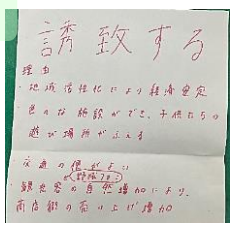 誘致する
理由
・地域活性化により経済安定
・色々な施設ができ、子供たちの
遊び場所がふえる
交通の便がよい
・観光客の自然増加により、
商店街の売り上げ増加